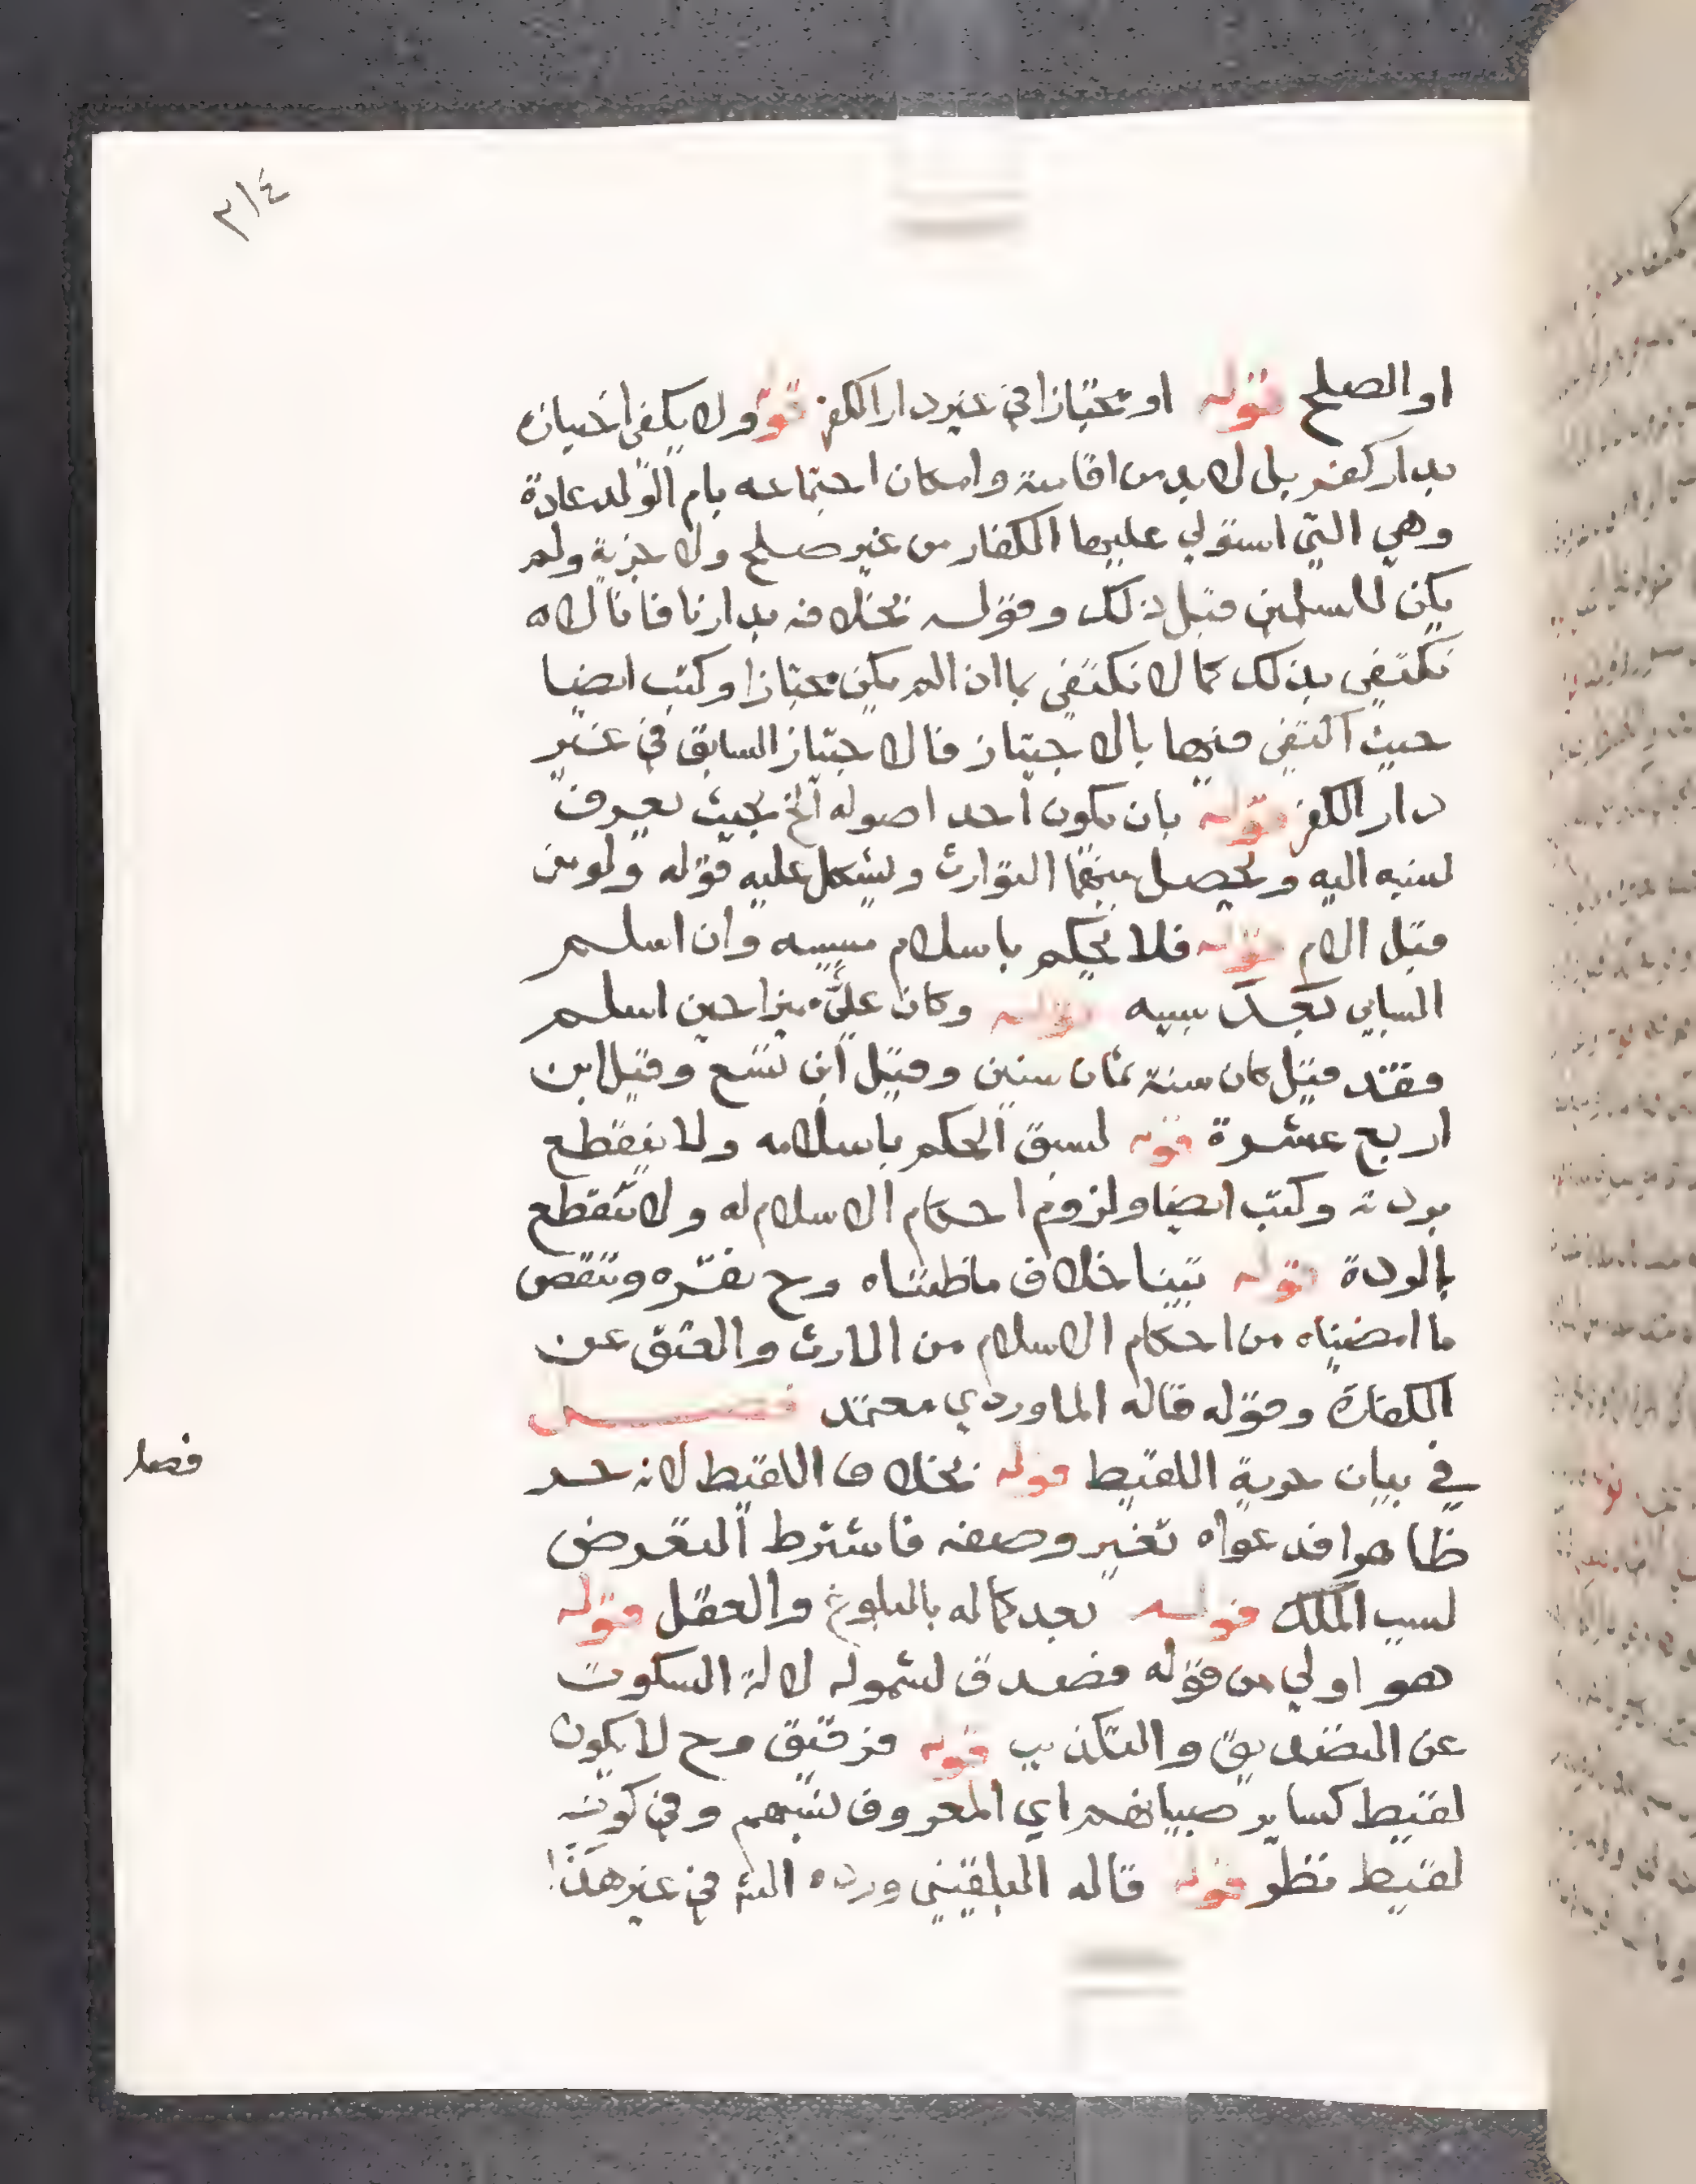 ٣١٤
او الصلح قوله او مجتازا في غير دار الكفر قوله ولا يكفي اجتيازه
بدار كفر بل لا بد من اقامة وامكان اجتماعه بام الولد عادة
وهي التي استولي عليها الكفار من غير صلح ولا جزية ولم
يكن للمسلمين قبل ذلك وقوله بخلافه بدارنا فانا لا
نكتفي بذلك كما لا نكتفي بما ان لم يكن مجتازا وكتب ايضا
حيث اكتفي فيها بالاجتياز فالاجتياز السابق في غير
دار الكفر قوله بان يكون احد اصوله الخ بحيث يعرف
نسبه اليه ويحصل بينهما التوارث ويشكل عليه قوله ولو من
قبل الام قوله فلا يحكم باسلام مسبيه وان اسلم
السابي بعد سبيه قوله وكان علي مميزا حين اسلم
فقد قيل كان سنه ثمان سنين وقيل ابن تسع وقيل ابن
اربع عشرة قوله لسبق الحكم باسلامه ولا ينقطع
بردته وكتب ايضا ولزوم احكام الاسلام له ولا تنقطع
بالردة قوله تبينا خلاف ما ظنناه وح نقره وننقض
ما امضيناه من احكام الاسلام من الارث والعتق عن
الكفارة وقوله قاله الماوردي معتمد فصل
في بيان حرية اللقيط قوله بخلاف اللقيط لانه حر
فصل
ظاهرا فدعواه تغير وصفه فاشترط التعرض
لسبب الملك قوله بعد كماله بالبلوغ والعقل قوله
هو اولي من قوله فصدق لشموله لالة السكوت
عن التصديق والتكذيب قوله فرقيق وح لا يكون
لقيط كساير صبيانهم اي المعروف نسبهم وفي كونه
لقيط نظر قوله قاله البلقيني ورده الش في غير هذا